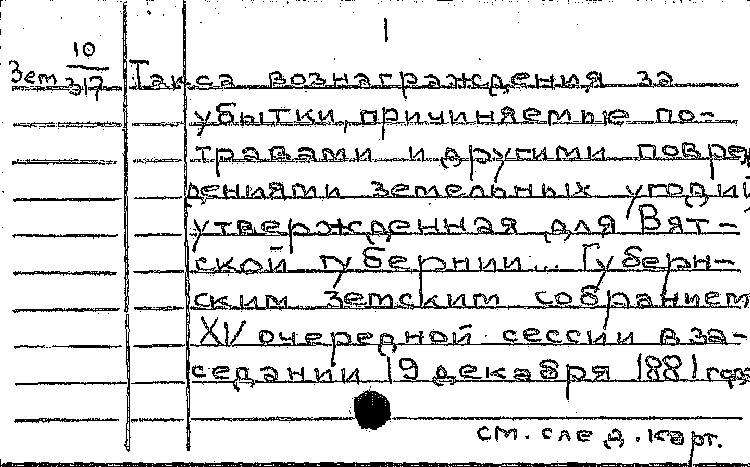 1
Зем 10/317 Такса вознаграждения за
убытки, причиняемые по-
травами и другими повреж
дениями земельных угодий
утвержденная для Вят-
ской губернии... Губерн-
ским земским собранием
XIV очередной сессии в за-
седании 19 декабря 1881 года
см. след. карт.